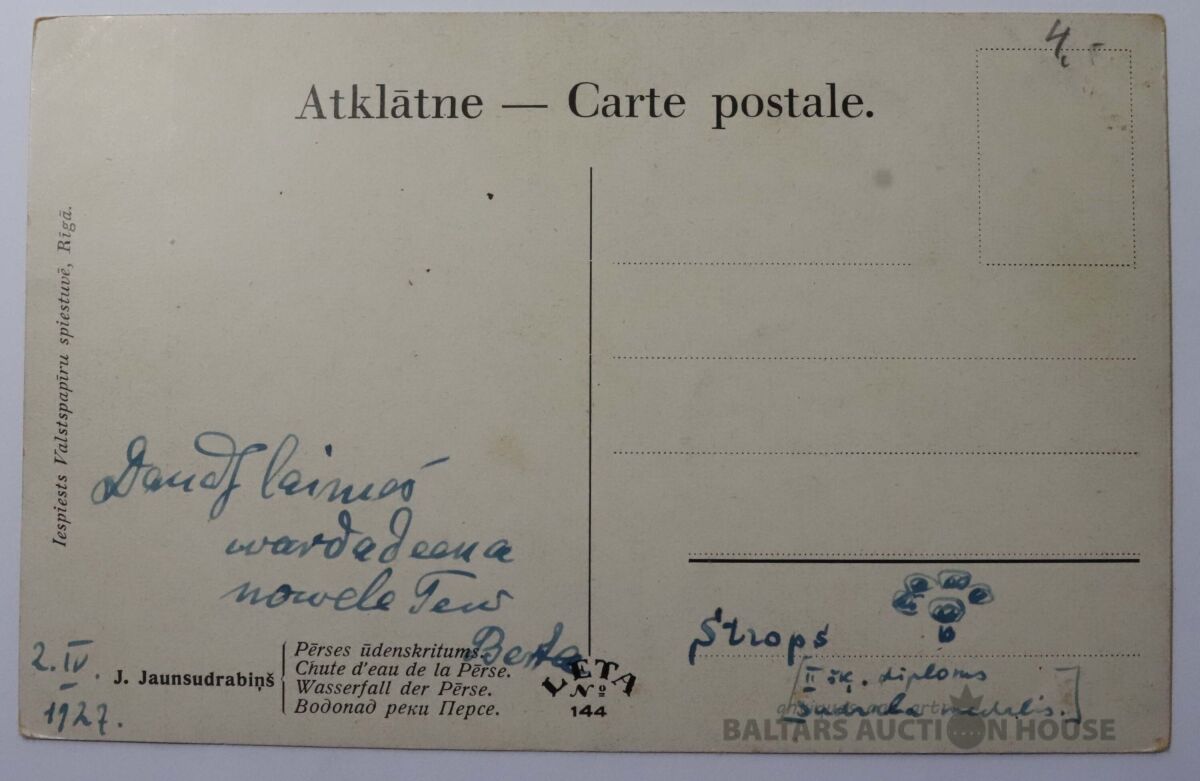 4.
Atklātne — Carte postale.
Iespiests Valstspapīru spiestuvē, Rīgā.
Daudz laimes
wardadeena
nowele Tew
Berta
2.IV.
1927.
J. Jaunsudrabiņš
Pērses ūdenskritums.
Chute d'eau de la Pērse.
Wasserfall der Pērse.
Водопад реки Персе.
LETA
№
144
Strops
II šķ. diploms
sudraba medalis.
BALTARS AUCTION HOUSE